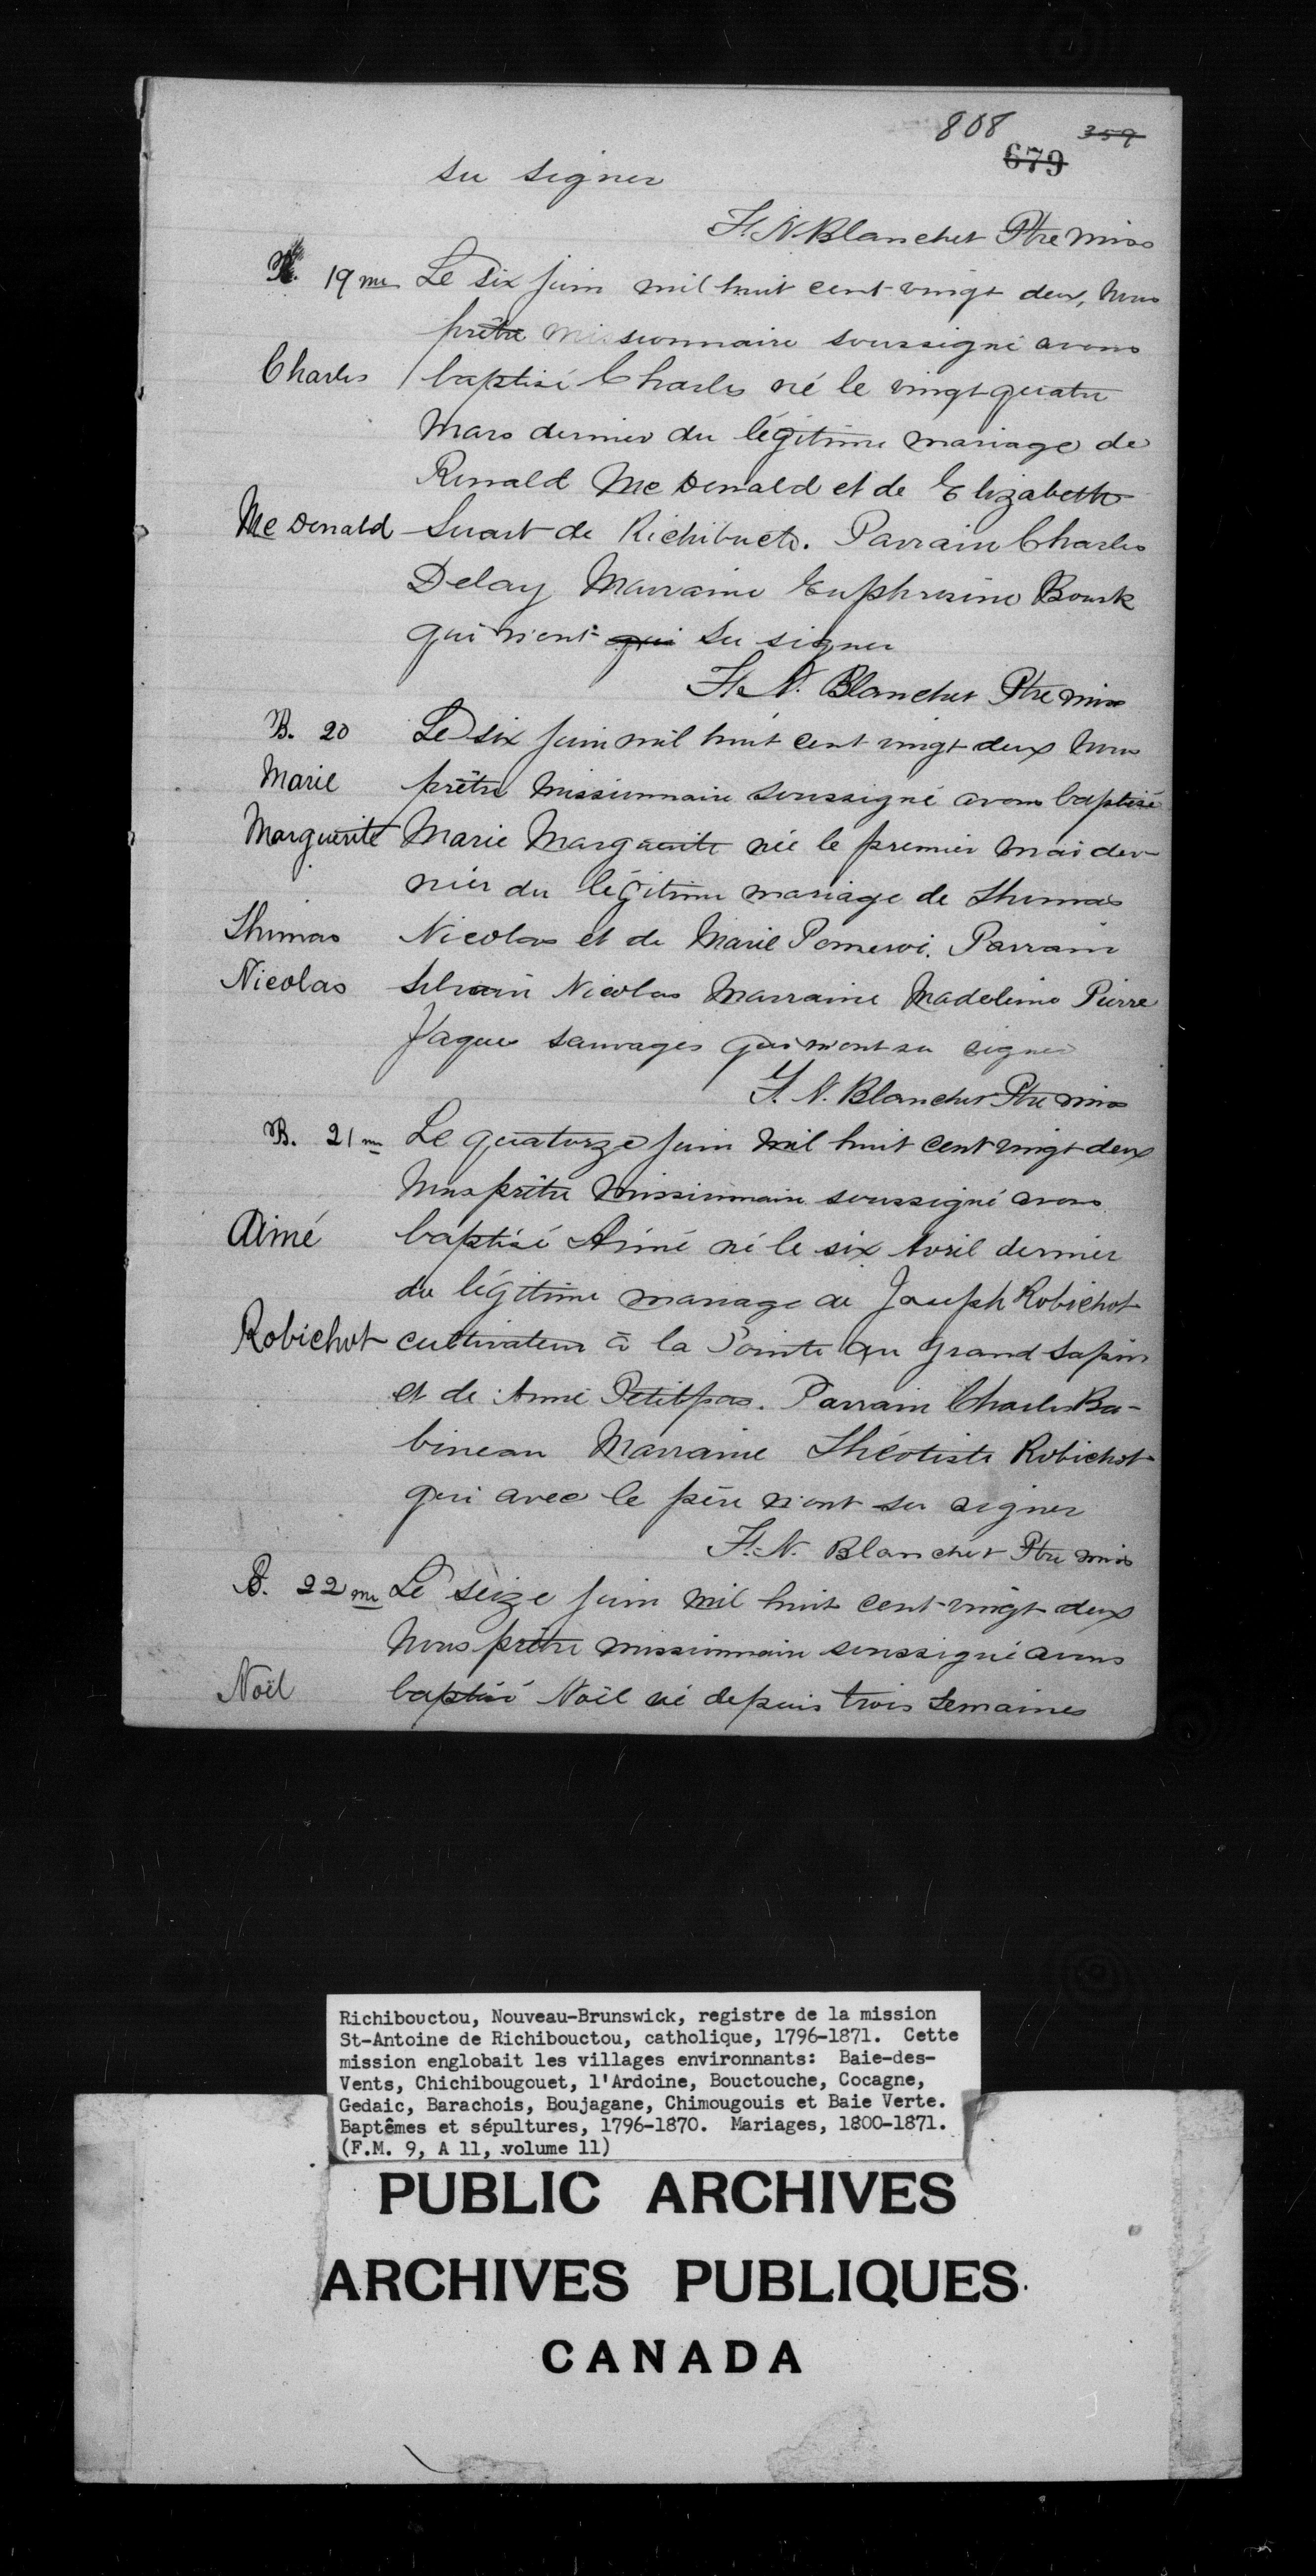 808 359
679
su signer
F. N. Blanchet Ptre miss
B. 19me Le six juin mil huit cent vingt deux, nous
prêtre missionnaire soussigné avons
Charles baptisé Charles né le vingt quatre
Mars dernier du légitime mariage de
Ronald Mc Donald et de Elizabeth
Mc Donald Suart de Richibucto. Parrain Charles
Delay Marraine Euphrosine Bourk
qui n'ont qui su signer
F. N. Blanchet Ptre miss
B. 20 Le six juin mil huit cent vingt deux nous
Marie prêtre missionnaire soussigné avons baptisé
Marguerite Marie Marguerite née le premier mai der-
nier du légitime mariage de Thomas
Thomas Nicolas et de Marie Pomeroi. Parrain
Nicolas Silvain Nicolas Marraine Madeleine Pierre
Jaques sauvages qui n'ont su signer
F. N. Blanchet Ptre miss
B. 21me Le quatorze juin mil huit cent vingt deux
Nous prêtre missionnaire soussigné avons
Aimé baptisé Aimé né le six Avril dernier
du légitime mariage de Joseph Robichot
Robichot cultivateur à la Pointe au Grand Sapin
et de Anne Petitpas. Parrain Charles Ba-
bineau Marraine Théotiste Robichot
qui avec le père n'ont su signer
F. N. Blanchet Ptre miss
B. 22me Le seize juin mil huit cent vingt deux
Nous prêtre missionnaire soussigné avons
Noël baptisé Noël né depuis trois semaines
Richibouctou, Nouveau-Brunswick, registre de la mission
St-Antoine de Richibouctou, catholique, 1796-1871. Cette
mission englobait les villages environnants: Baie-des-
Vents, Chichibougouet, l'Ardoine, Bouctouche, Cocagne,
Gedaic, Barachois, Boujagane, Chimougouis et Baie Verte.
Baptêmes et sépultures, 1796-1870. Mariages, 1800-1871.
(F.M. 9, A 11, volume 11)
PUBLIC ARCHIVES
ARCHIVES PUBLIQUES
CANADA